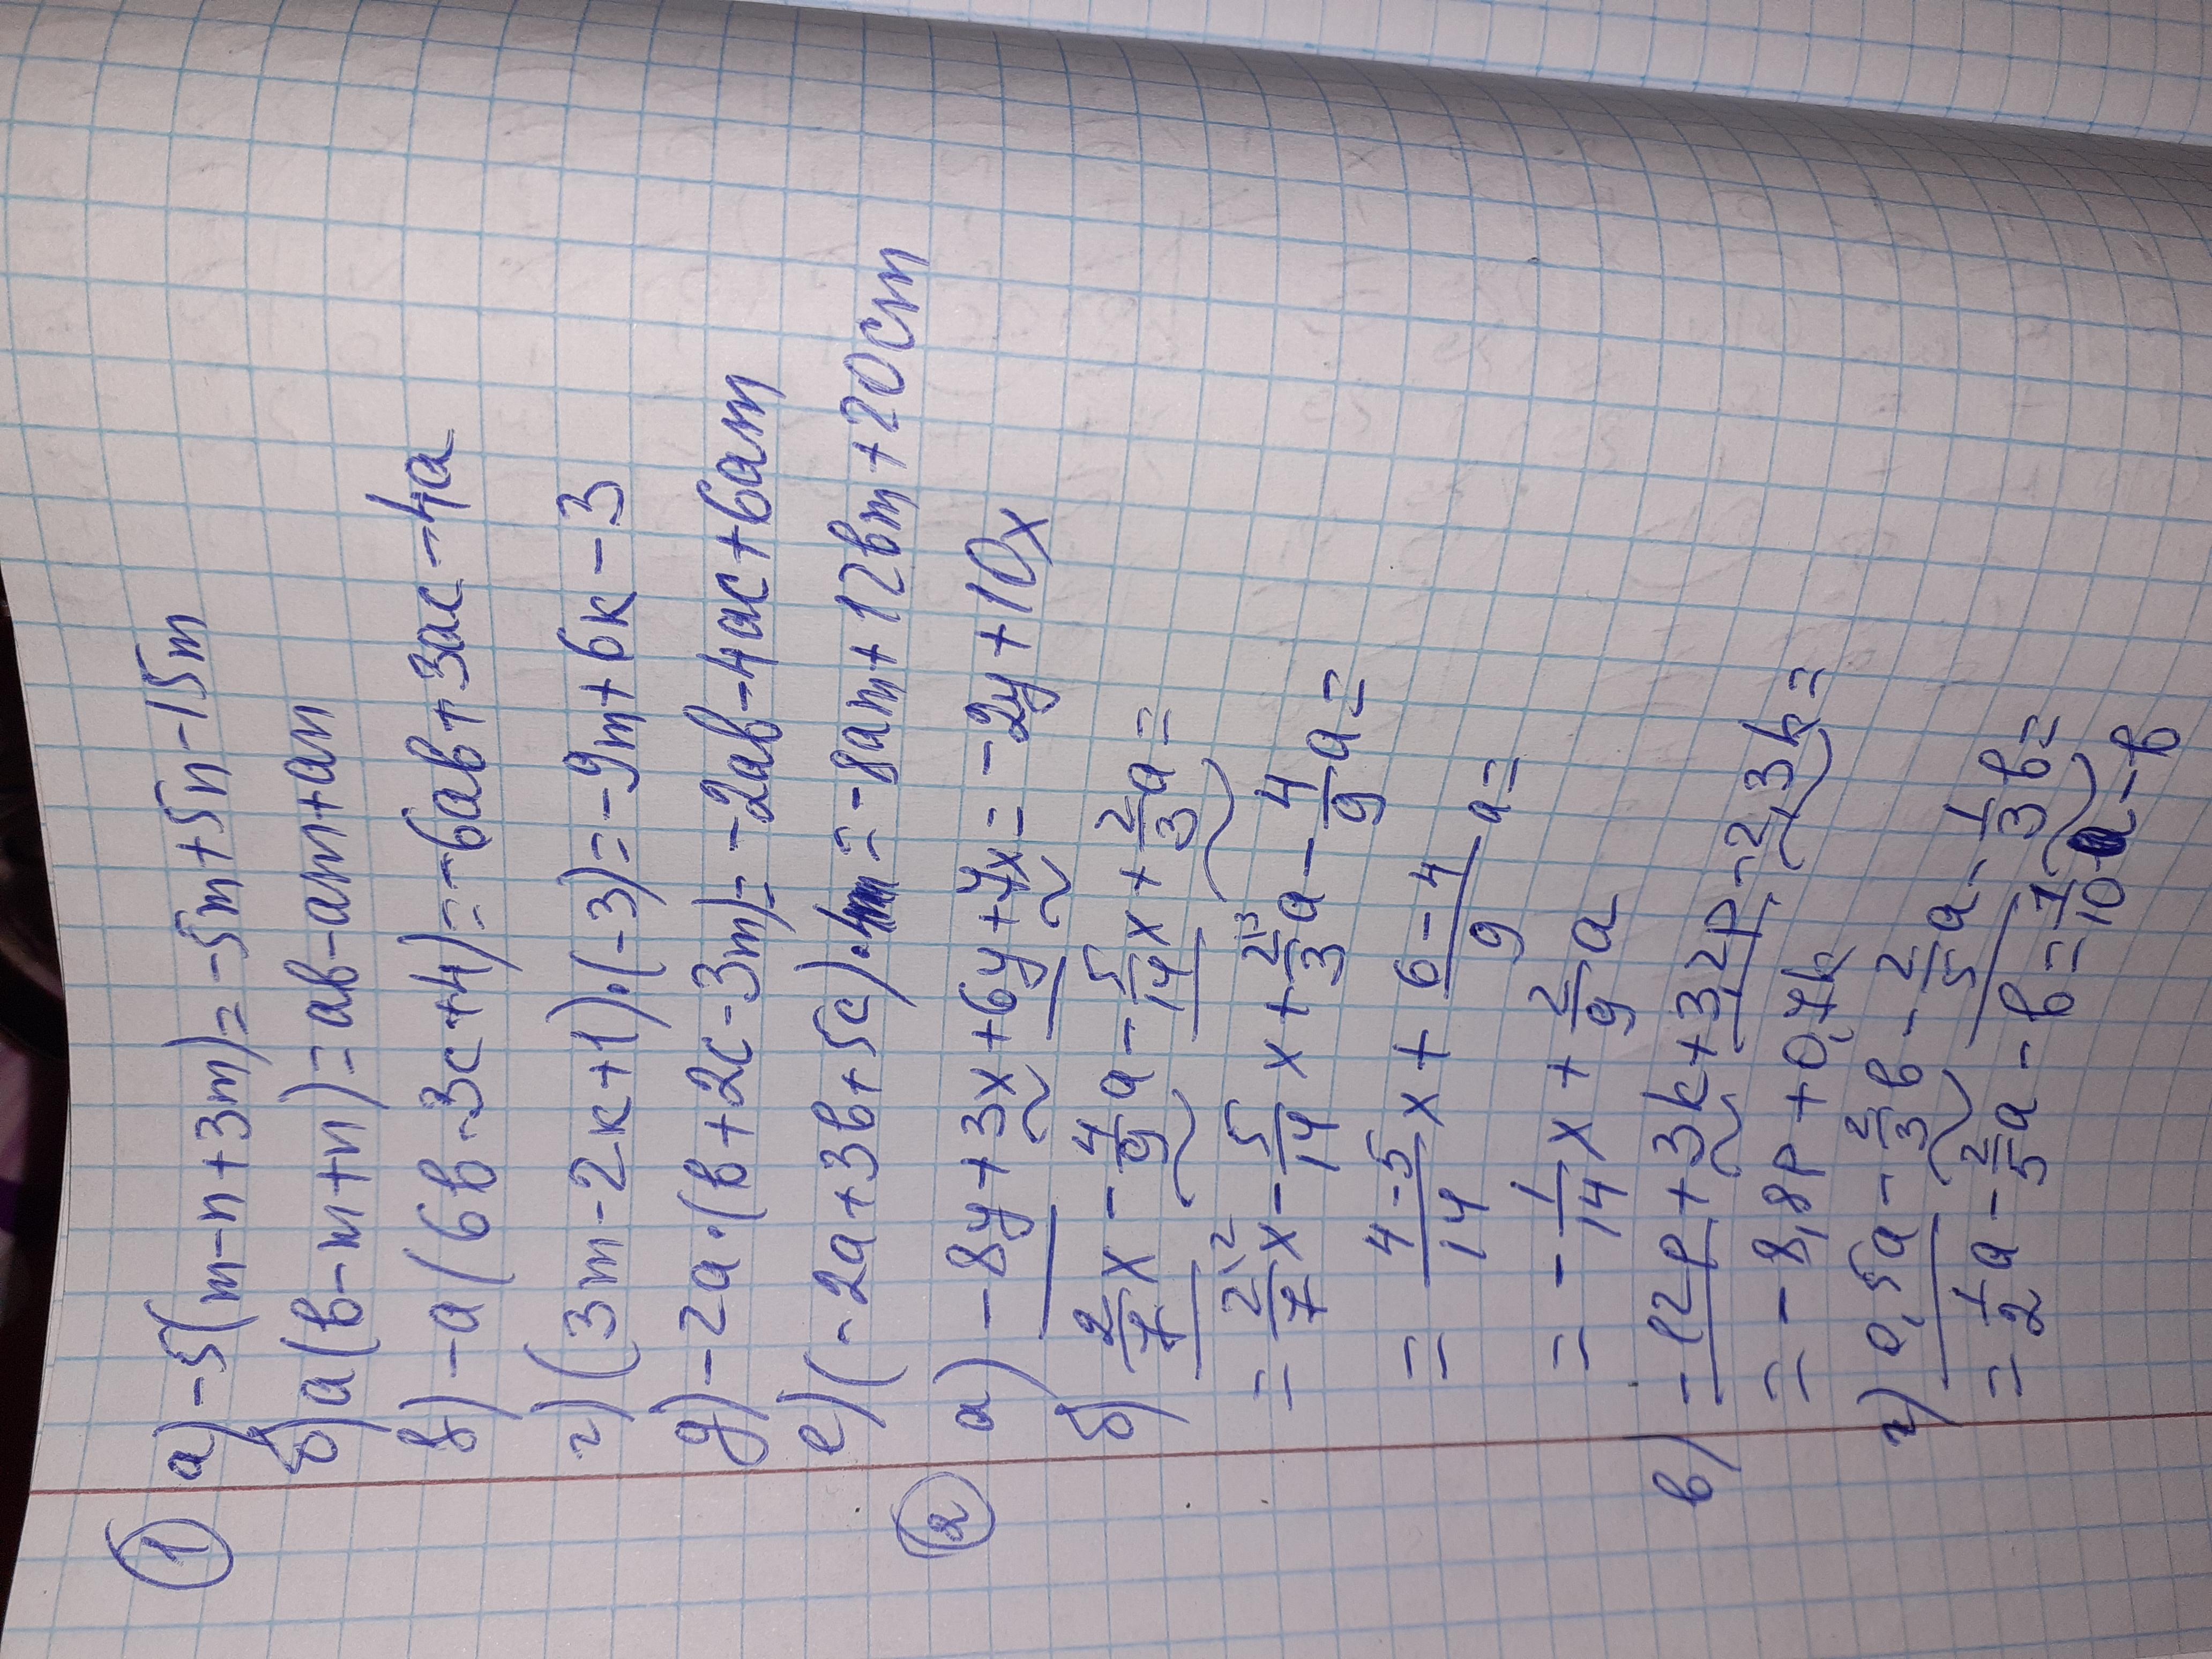 1 а) -5(m-n+3m)=-5m+5n-15m
б) a(b-m+n)=ab-am+an
в) -a(6b-3c+4)=-6ab+3ac-4a
г) (3m-2k+1)·(-3)=-9m+6k-3
д) -2a·(b+2c-3m)=-2ab-4ac+6am
е) (-2a+3b+5c)·4m=-8am+12bm+20cm
2 а) -8y+3x+6y+7x=-2y+10x
б) 2/7 x - 4/9 a - 5/14 x + 2/3 a =
= 2/7\2 x - 5/14 x + 2/3\3 a - 4/9 a =
= 4-5/14 x + 6-4/9 a =
= - 1/14 x + 2/9 a
в) -12p+3k+3,2p-2,3k=
= -8,8p+0,7k
г) 0,5a - 2/3 b - 2/5 a - 1/3 b =
= 1/2 a - 2/5 a - b = 1/10 a - b